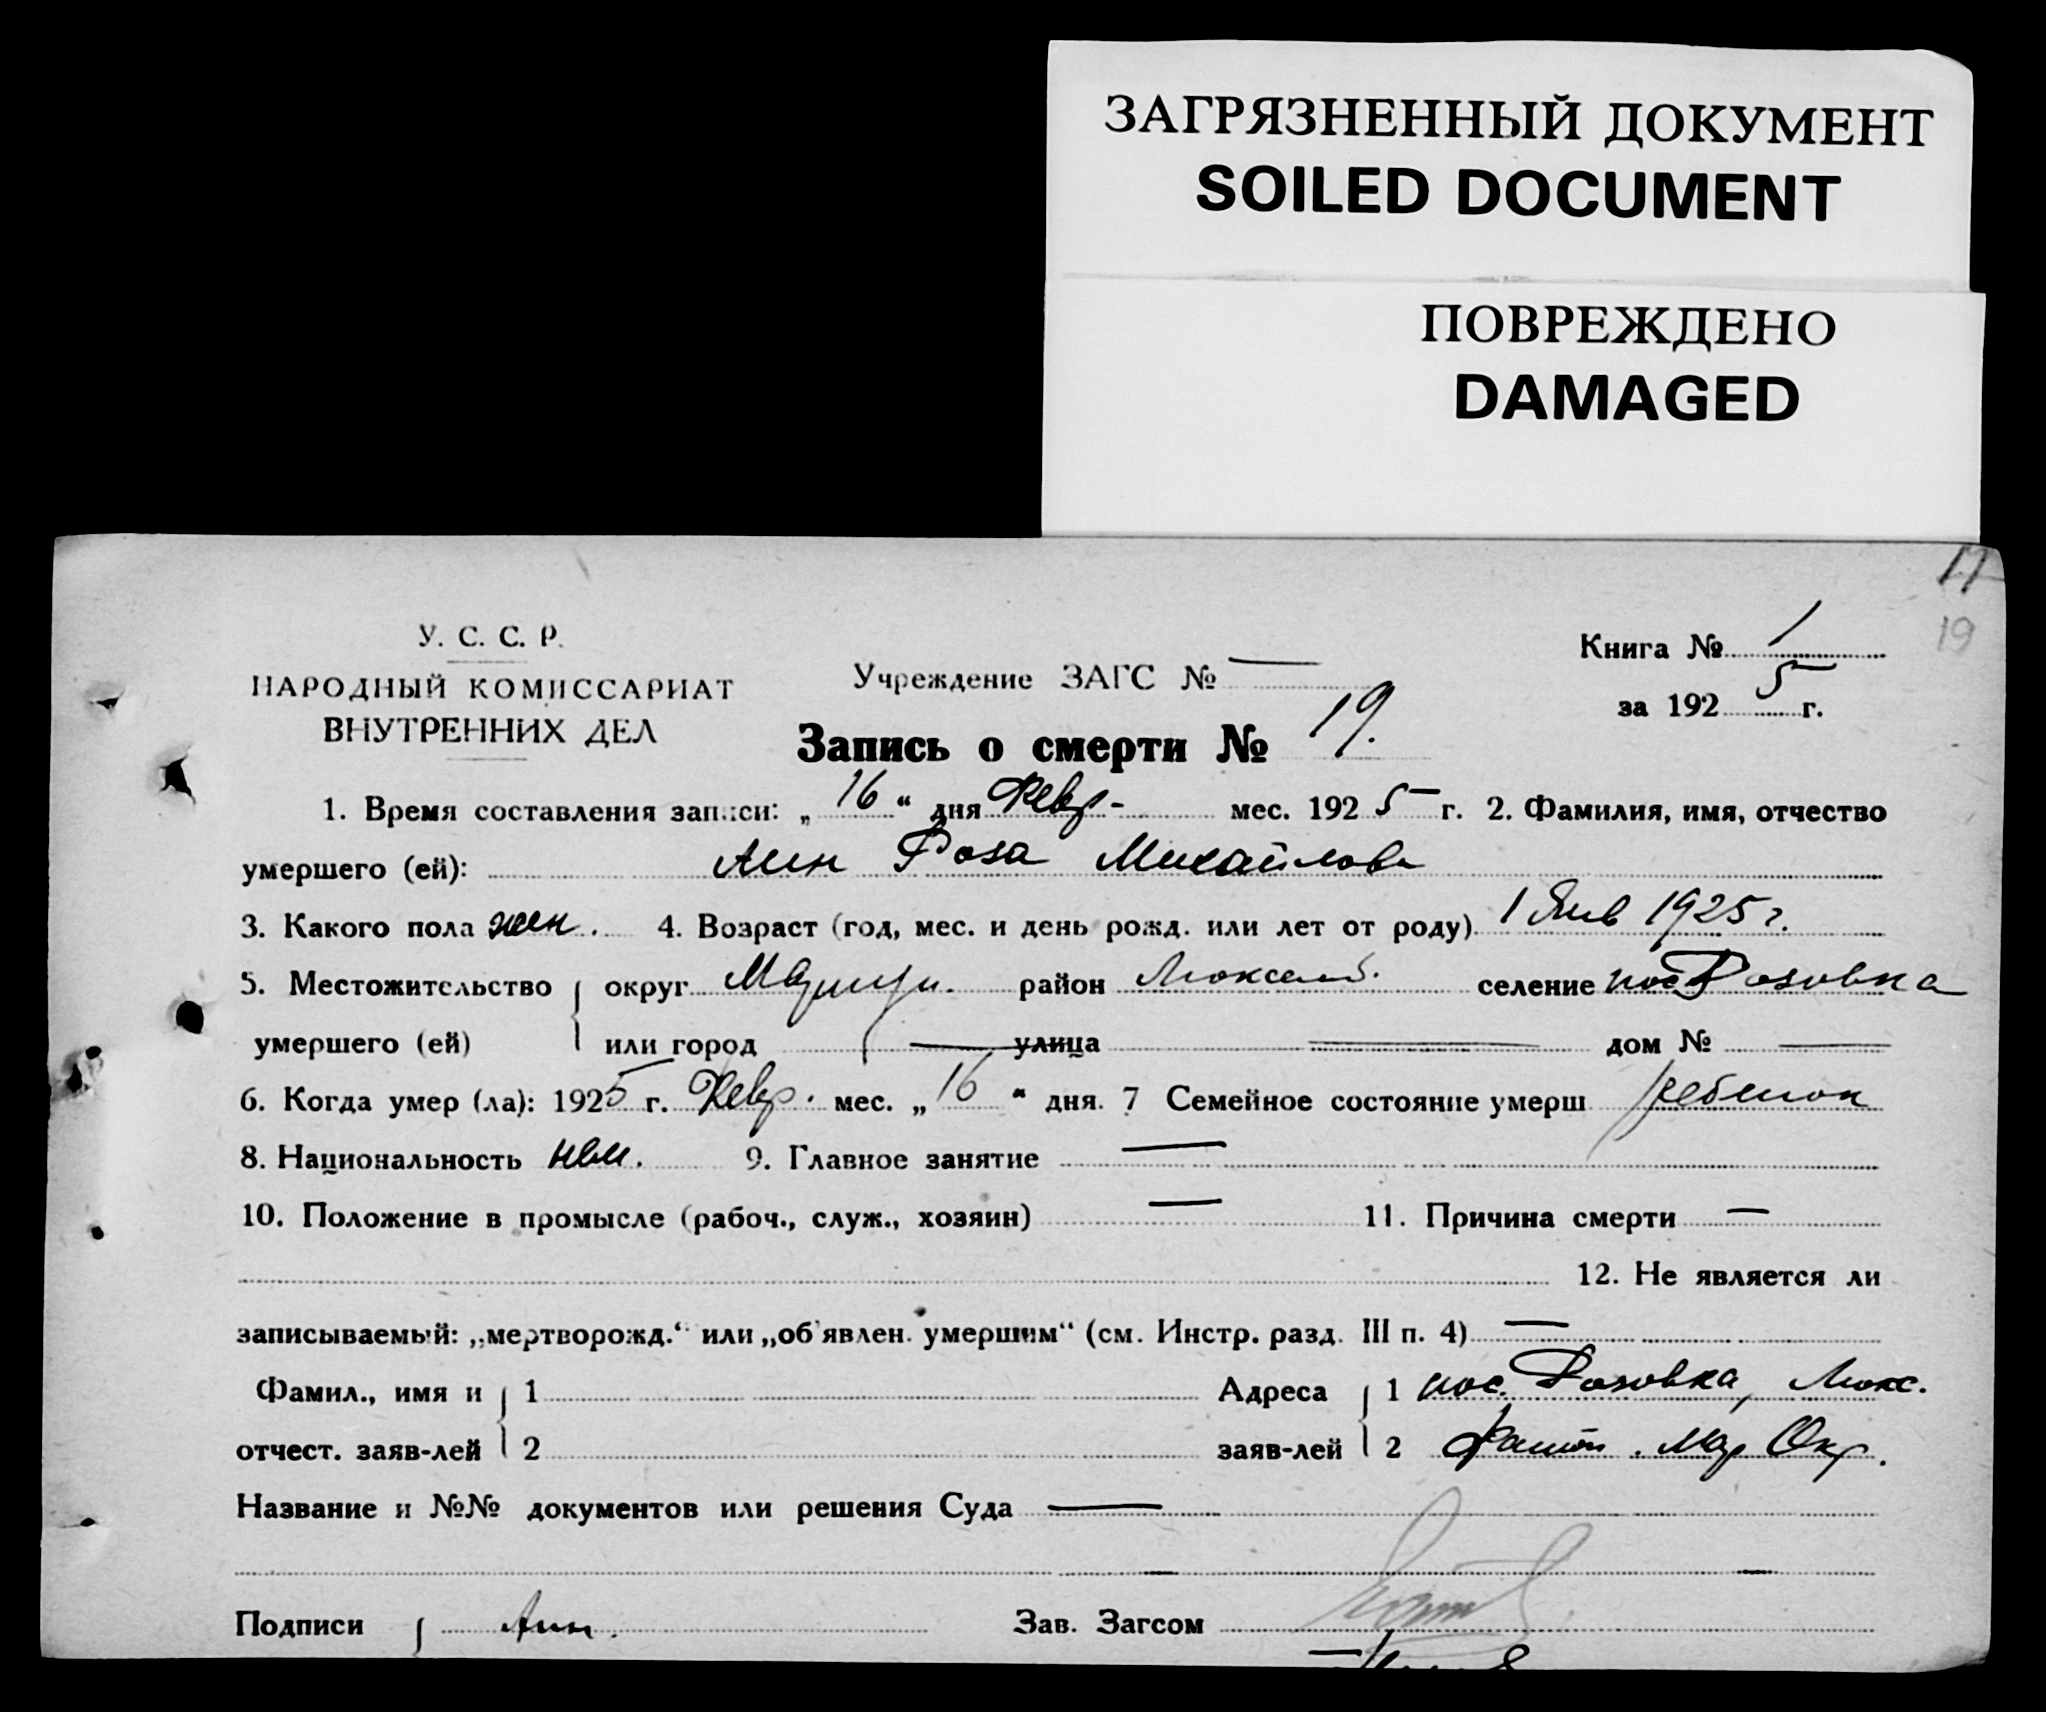 ЗАГРЯЗНЕННЫЙ ДОКУМЕНТ
SOILED DOCUMENT
ПОВРЕЖДЕНО
DAMAGED
17
19
У. С. С. Р.
НАРОДНЫЙ КОМИССАРИАТ
ВНУТРЕННИХ ДЕЛ
Учреждение ЗАГС № —
Книга № 1
за 1925 г.
Запись о смерти № 19.
1. Время составления записи: „16“ дня Февр- мес. 1925 г. 2. Фамилия, имя, отчество
умершего (ей): Роза Михайлова
3. Какого пола жен. 4. Возраст (год, мес. и день рожд. или лет от роду) 1 Янв 1925 г.
5. Местожительство округ Мариуп. район Люксемб. селение пос Розовка
умершего (ей) или город — улица — дом № —
6. Когда умер (ла): 1925 г. Февр. мес. „16“ дня. 7 Семейное состояние умерш ребенок
8. Национальность нем. 9. Главное занятие —
10. Положение в промысле (рабоч., служ., хозяин) — 11. Причина смерти —
12. Не является ли
записываемый: „мертворожд.“ или „об'явлен. умершим“ (см. Инстр. разд. III п. 4) —
Фамил., имя и 1 Адреса 1 пос. Розовка, Люкс.
отчест. заяв-лей 2 заяв-лей 2 Мар Окр.
Название и №№ документов или решения Суда —
Подписи Зав. Загсом